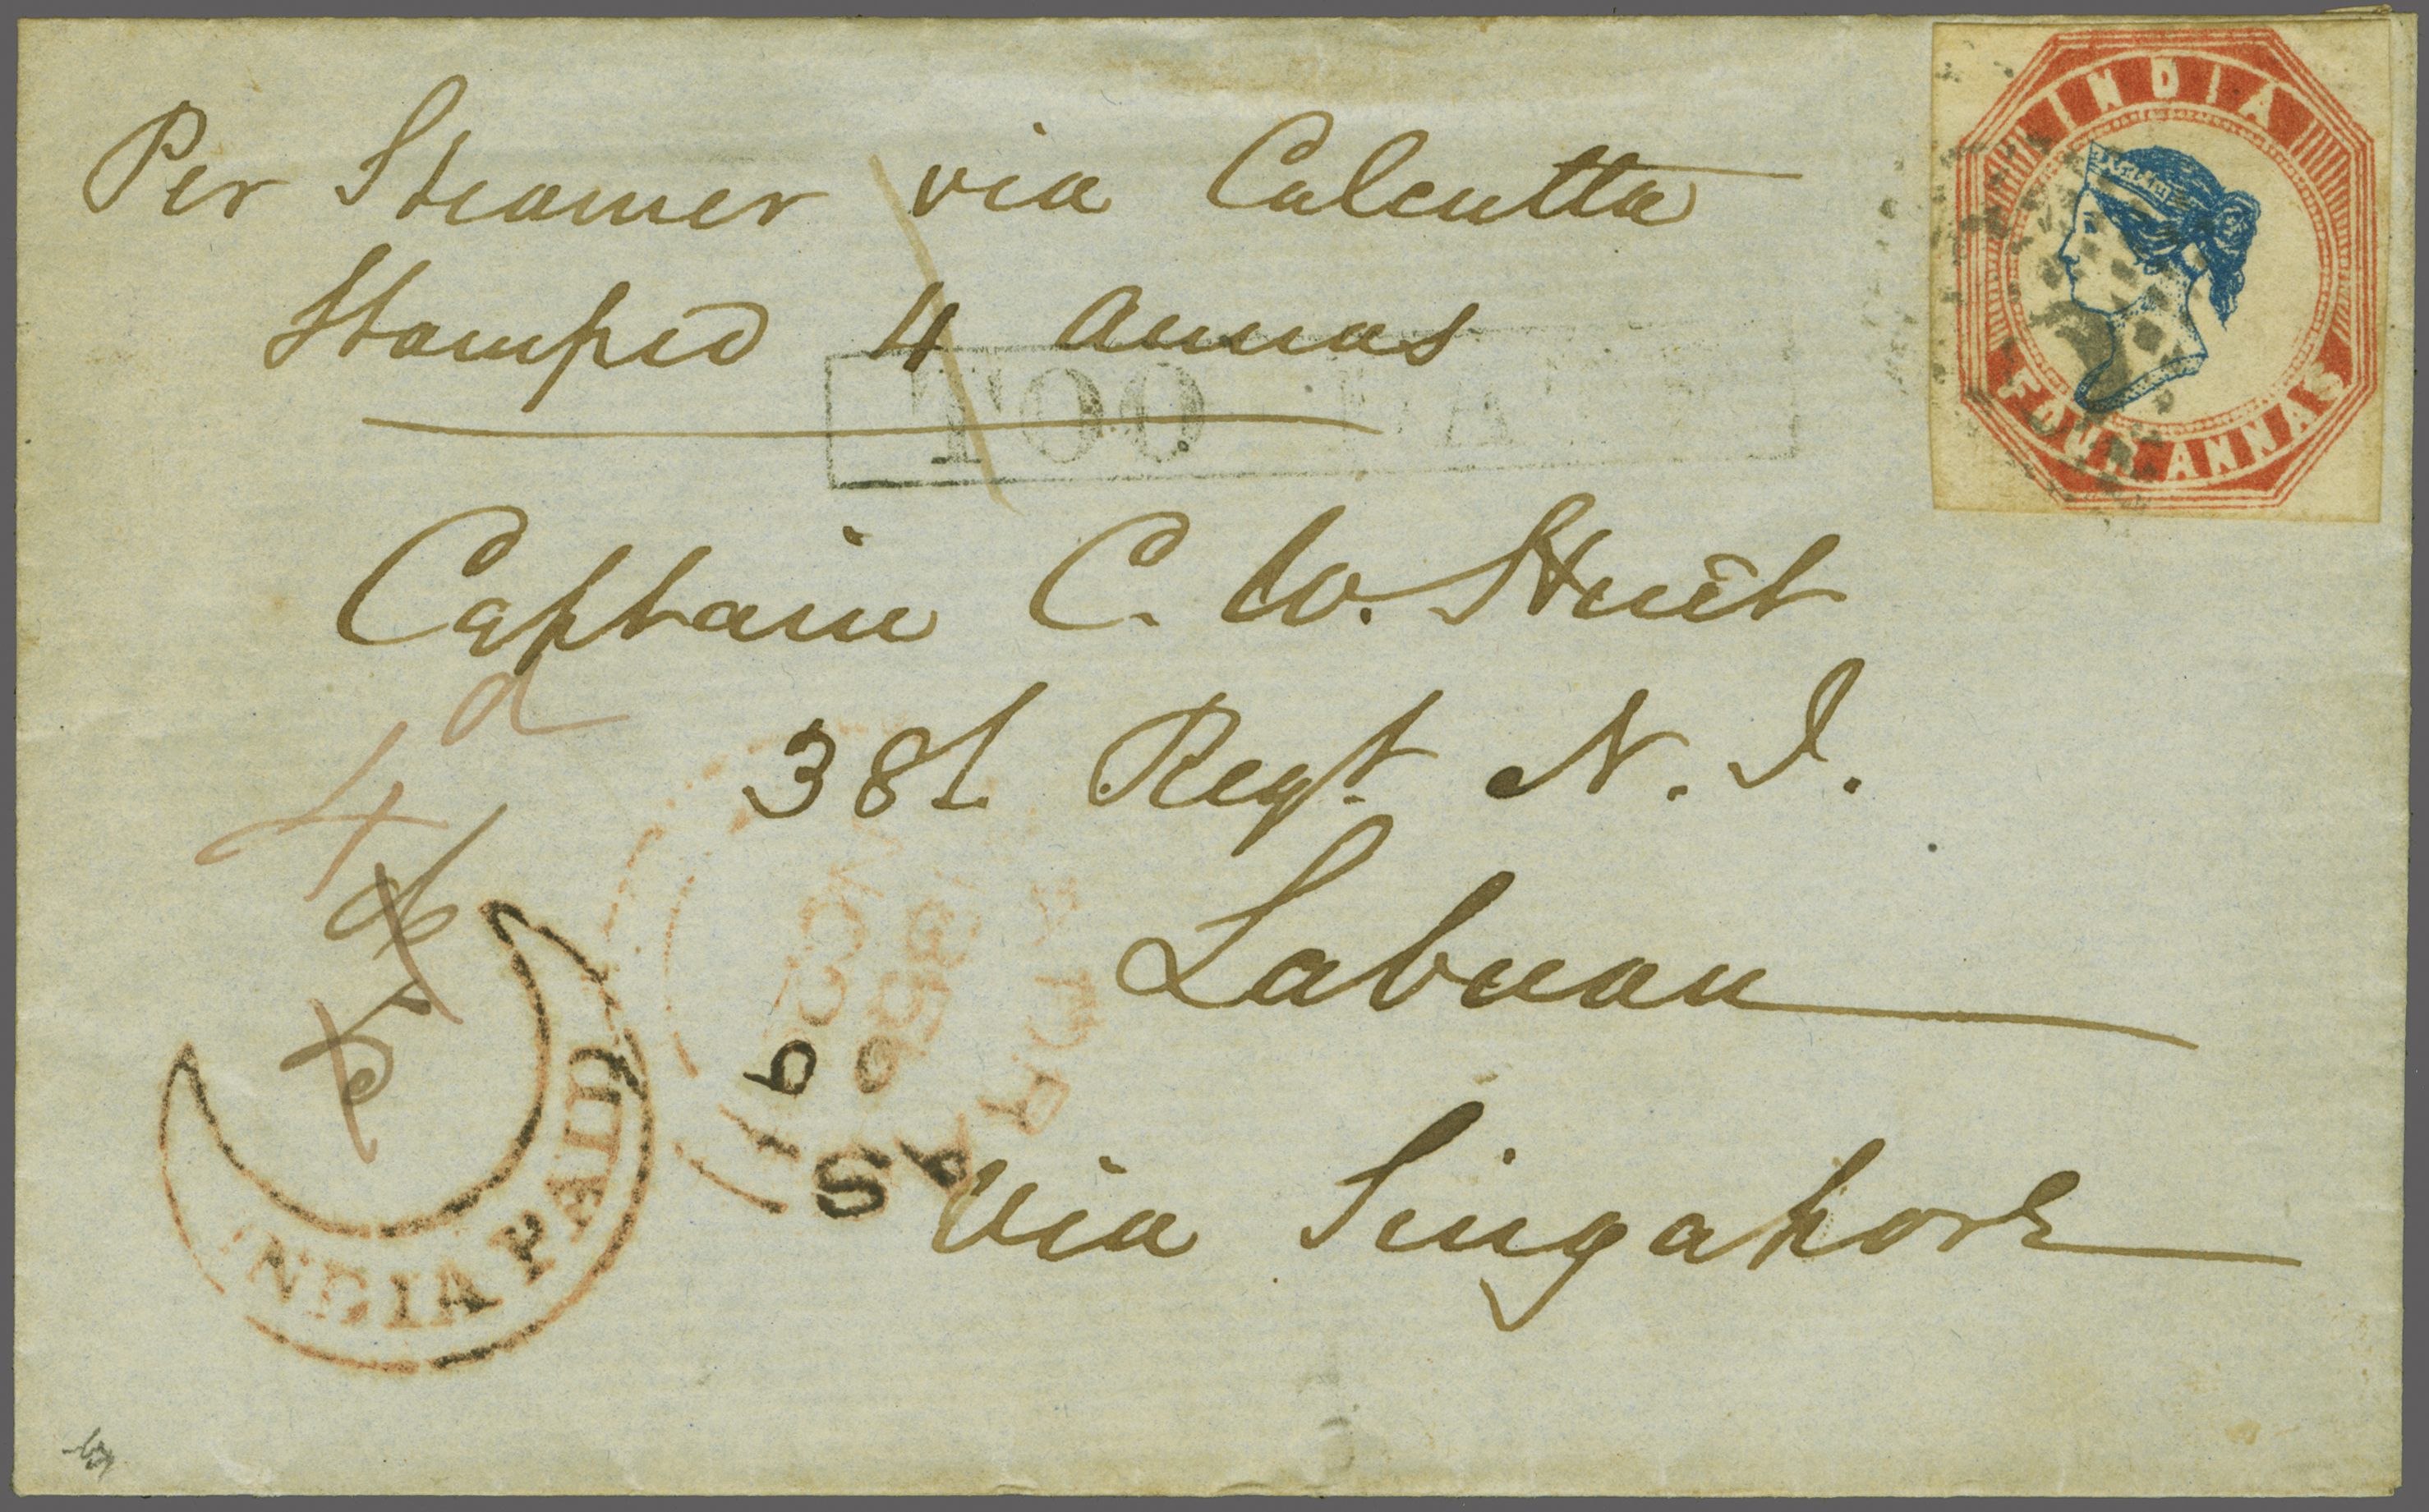 Per Steamer via Calcutta
Stamped 4 Annas
INDIA
FOUR ANNAS
TOO LATE
Captain C. W.
38t Regt. N. I.
Labuan
via Singapore
4d
INDIA PAID